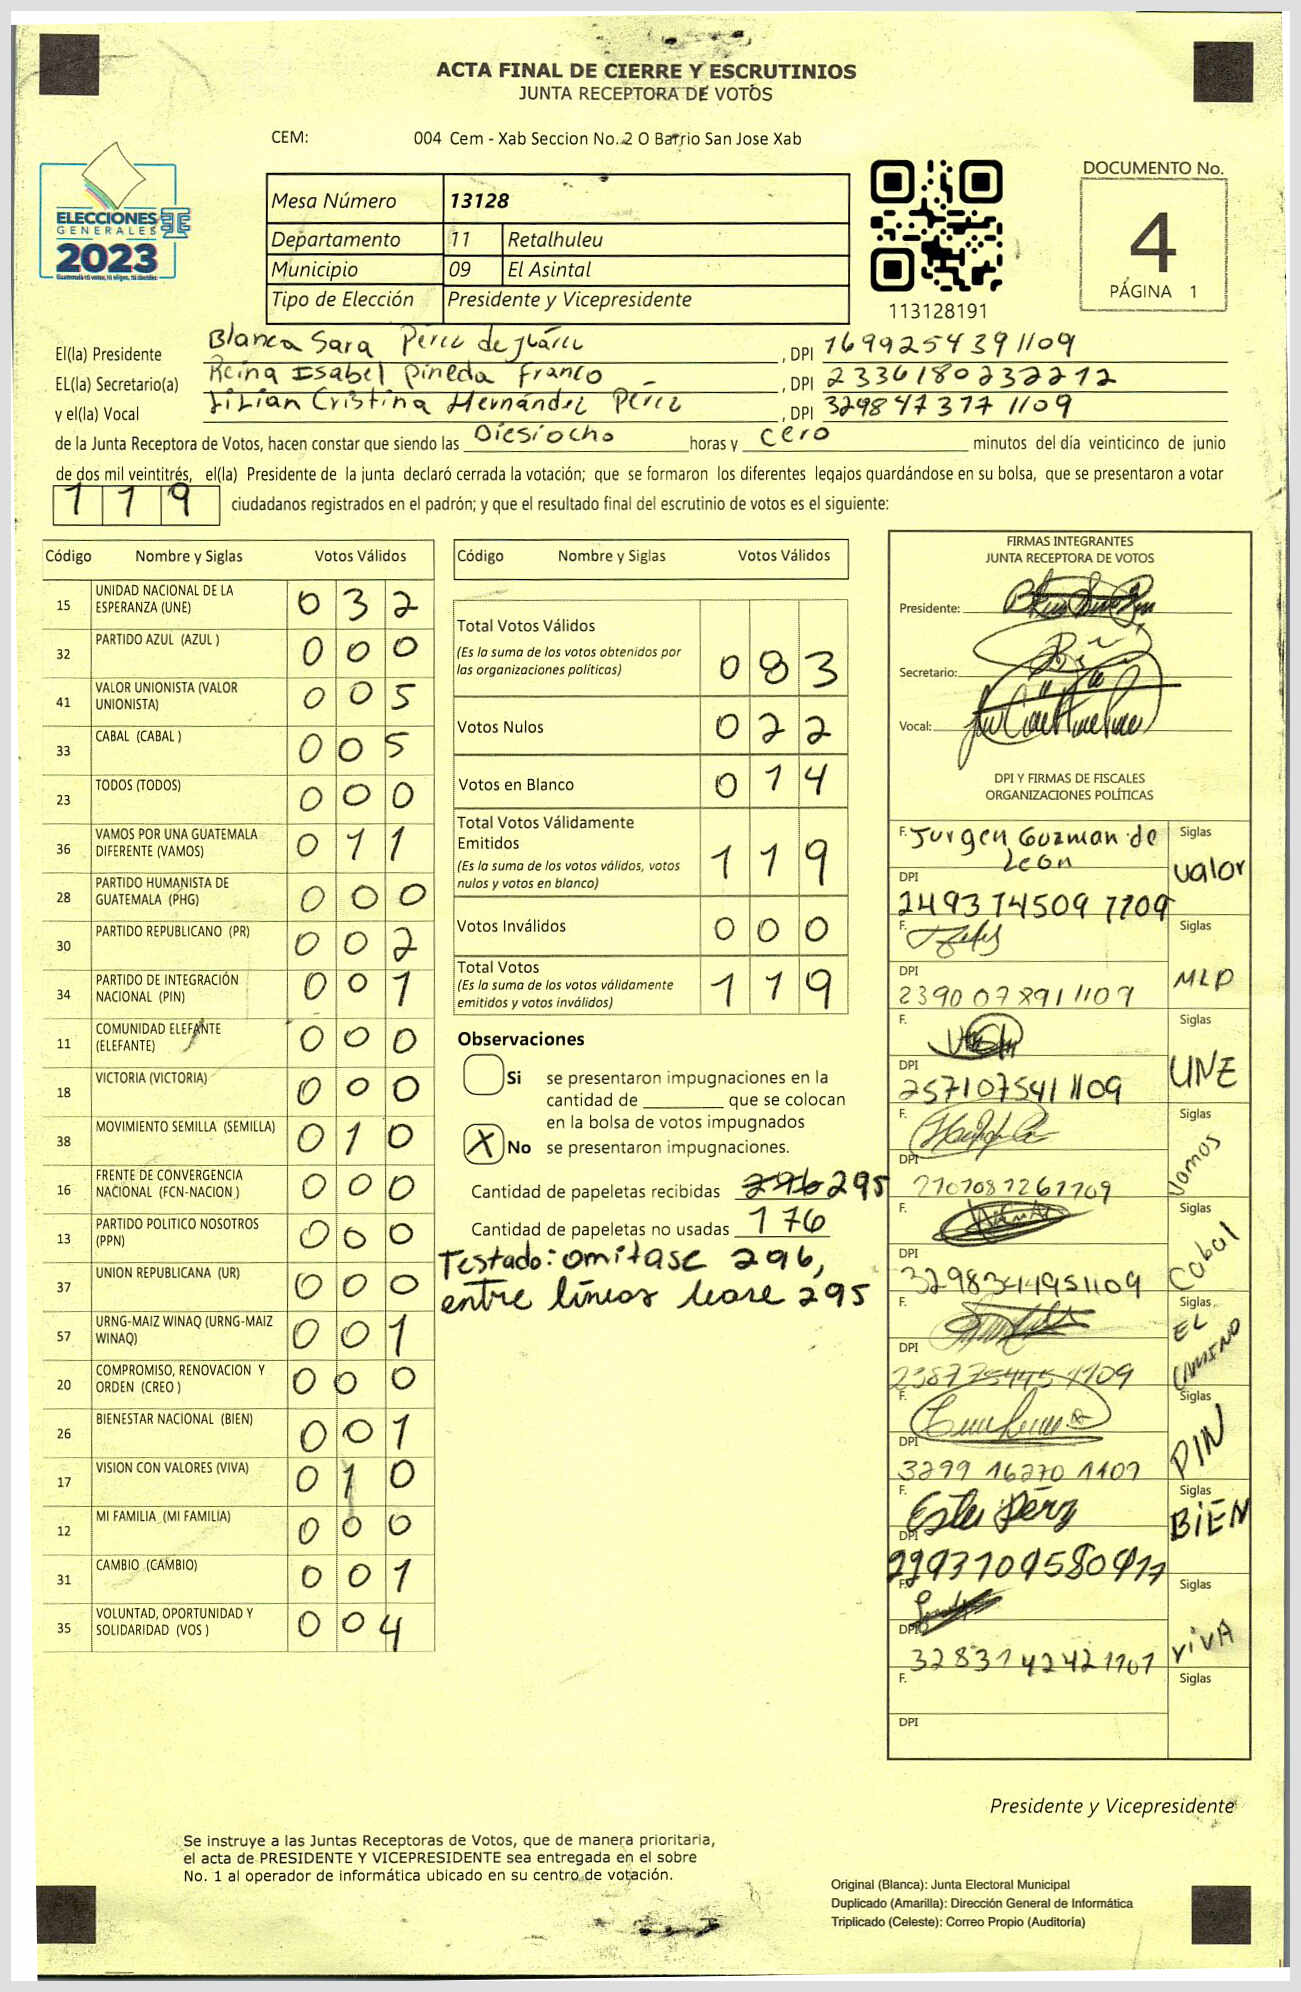 ACTA FINAL DE CIERRE Y ESCRUTINIOS
JUNTA RECEPTORA DE VOTOS
CEM: 004 Cem - Xab Seccion No. 2 O Barrio San Jose Xab
ELECCIONES
GENERALES
2023
Mesa Número 13128
Departamento 11 Retalhuleu
Municipio 09 El Asintal
Tipo de Elección Presidente y Vicepresidente
113128191
DOCUMENTO No.
4
PÁGINA 1
El(la) Presidente Blanca Sara Pérez de Juárez , DPI 1699254391109
EL(la) Secretario(a) Reina Isabel Pineda Franco , DPI 2336180232212
y el(la) Vocal Lilian Cristina Hernández Pérez , DPI 3298473771109
de la Junta Receptora de Votos, hacen constar que siendo las Diesiocho horas y cero minutos del día veinticinco de junio
de dos mil veintitrés, el(la) Presidente de la junta declaró cerrada la votación; que se formaron los diferentes legajos guardándose en su bolsa, que se presentaron a votar
119 ciudadanos registrados en el padrón; y que el resultado final del escrutinio de votos es el siguiente:
Código Nombre y Siglas Votos Válidos
15 UNIDAD NACIONAL DE LA ESPERANZA (UNE) 032
32 PARTIDO AZUL (AZUL ) 000
41 VALOR UNIONISTA (VALOR UNIONISTA) 005
33 CABAL (CABAL ) 005
23 TODOS (TODOS) 000
36 VAMOS POR UNA GUATEMALA DIFERENTE (VAMOS) 011
28 PARTIDO HUMANISTA DE GUATEMALA (PHG) 000
30 PARTIDO REPUBLICANO (PR) 002
34 PARTIDO DE INTEGRACIÓN NACIONAL (PIN) 001
11 COMUNIDAD ELEFANTE (ELEFANTE) 000
18 VICTORIA (VICTORIA) 000
38 MOVIMIENTO SEMILLA (SEMILLA) 010
16 FRENTE DE CONVERGENCIA NACIONAL (FCN-NACION ) 000
13 PARTIDO POLITICO NOSOTROS (PPN) 000
37 UNION REPUBLICANA (UR) 000
57 URNG-MAIZ WINAQ (URNG-MAIZ WINAQ) 001
20 COMPROMISO, RENOVACION Y ORDEN (CREO ) 000
26 BIENESTAR NACIONAL (BIEN) 001
17 VISION CON VALORES (VIVA) 010
12 MI FAMILIA (MI FAMILIA) 000
31 CAMBIO (CAMBIO) 001
35 VOLUNTAD, OPORTUNIDAD Y SOLIDARIDAD (VOS ) 004
Código Nombre y Siglas Votos Válidos
Total Votos Válidos
(Es la suma de los votos obtenidos por
las organizaciones políticas) 083
Votos Nulos 022
Votos en Blanco 014
Total Votos Válidamente
Emitidos
(Es la suma de los votos válidos, votos
nulos y votos en blanco) 119
Votos Inválidos 000
Total Votos
(Es la suma de los votos válidamente
emitidos y votos inválidos) 119
Observaciones
Si se presentaron impugnaciones en la
cantidad de ________ que se colocan
en la bolsa de votos impugnados
X No se presentaron impugnaciones.
Cantidad de papeletas recibidas 296 295
Cantidad de papeletas no usadas 176
Testado: omitase 296,
entre líneas lease 295
FIRMAS INTEGRANTES
JUNTA RECEPTORA DE VOTOS
Presidente:
Secretario:
Vocal:
DPI Y FIRMAS DE FISCALES
ORGANIZACIONES POLÍTICAS
F. Jurgen Guzman de Leon Siglas
DPI valor
2493745097709
F. Siglas
DPI MLP
2390078911109
F. Siglas
DPI UNE
2571075411109
F. Siglas
DPI Vamos
F. Siglas
DPI Cabal
3298344951109
F. Siglas
DPI EL
F. Siglas
DPI PIN
3299162701109
F. Siglas
DPI BIEN
F. Siglas
DPI ViVA
F. Siglas
DPI
Presidente y Vicepresidente
Se instruye a las Juntas Receptoras de Votos, que de manera prioritaria,
el acta de PRESIDENTE Y VICEPRESIDENTE sea entregada en el sobre
No. 1 al operador de informática ubicado en su centro de votación.
Original (Blanca): Junta Electoral Municipal
Duplicado (Amarilla): Dirección General de Informática
Triplicado (Celeste): Correo Propio (Auditoría)